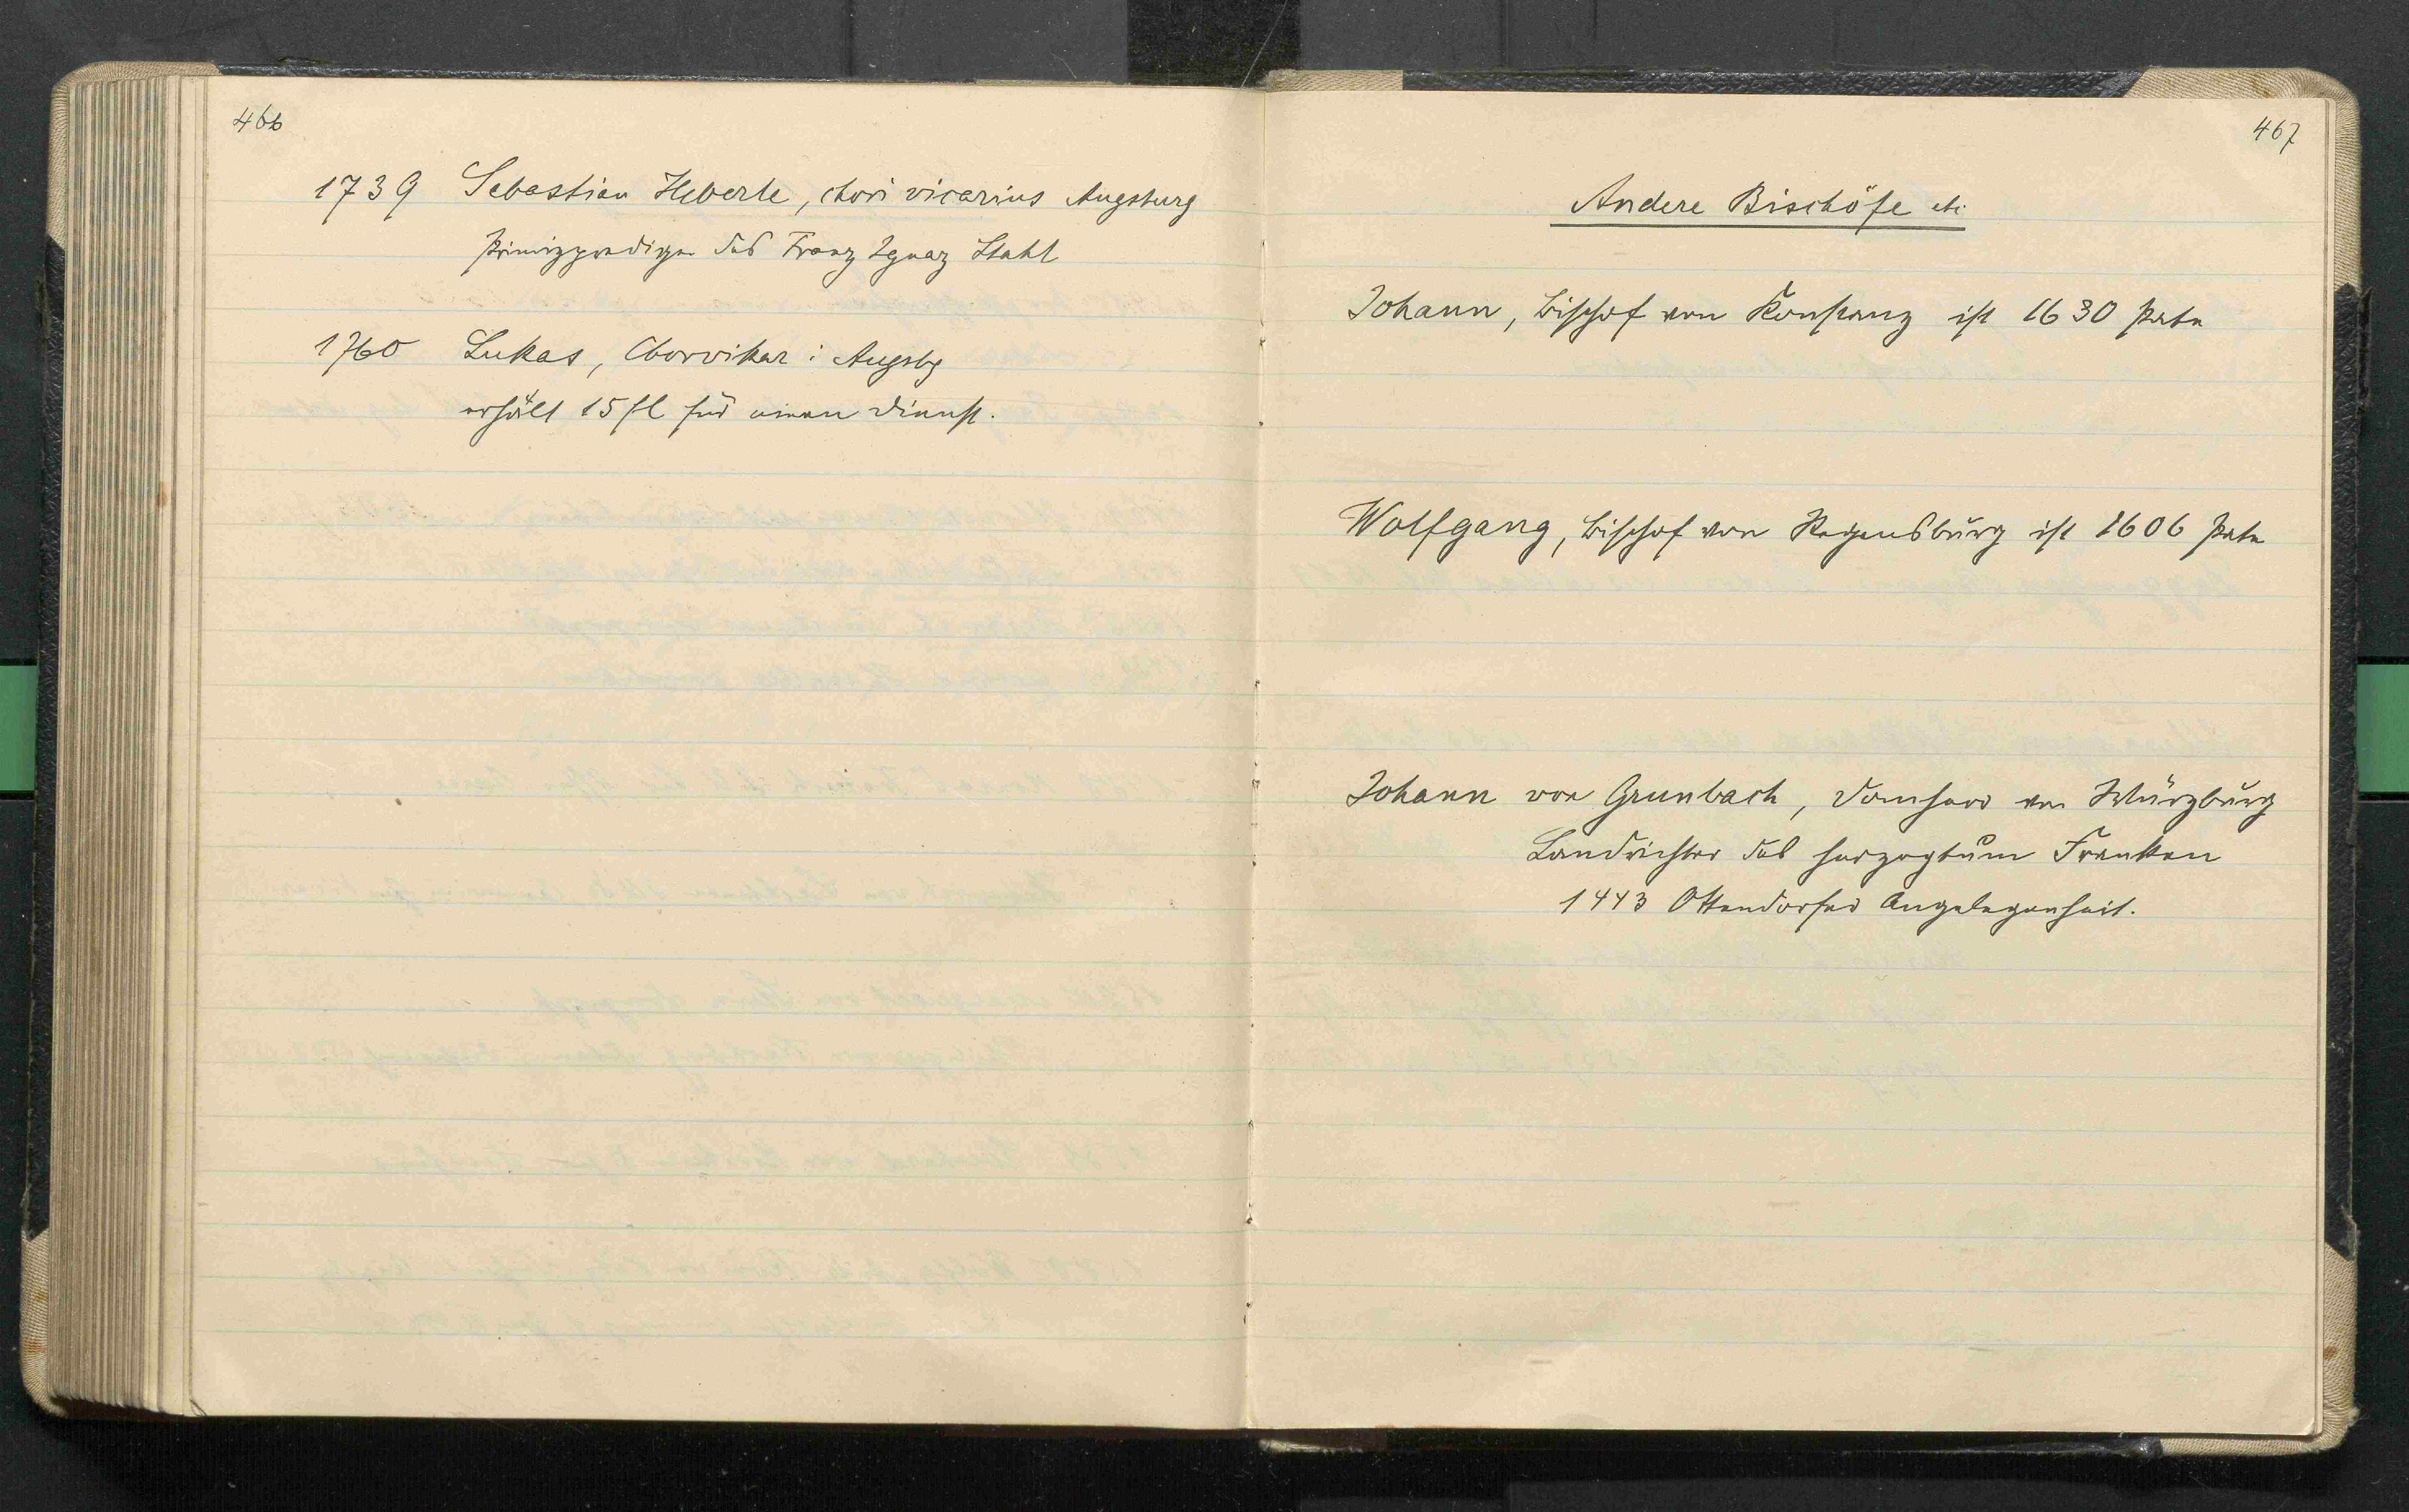 466
1739 Sebastian Heberle, chori vicarius Augsburg
Primizprediger des Franz Ignaz Stahl
1760 Lukas, Chorvikar i Augsbg
erhält 15 fl für einen Dienst.
467
Andere Bischöfe etc
Johann, Bischof von Konstanz ist 1630 Pate
Wolfgang, Bischof von Regensburg ist 1606 Pate
Johann von Grunbach, Domherr von Würzburg
Landrichter des Herzogtum Franken
1443 Ottendorfer Angelegenheit.